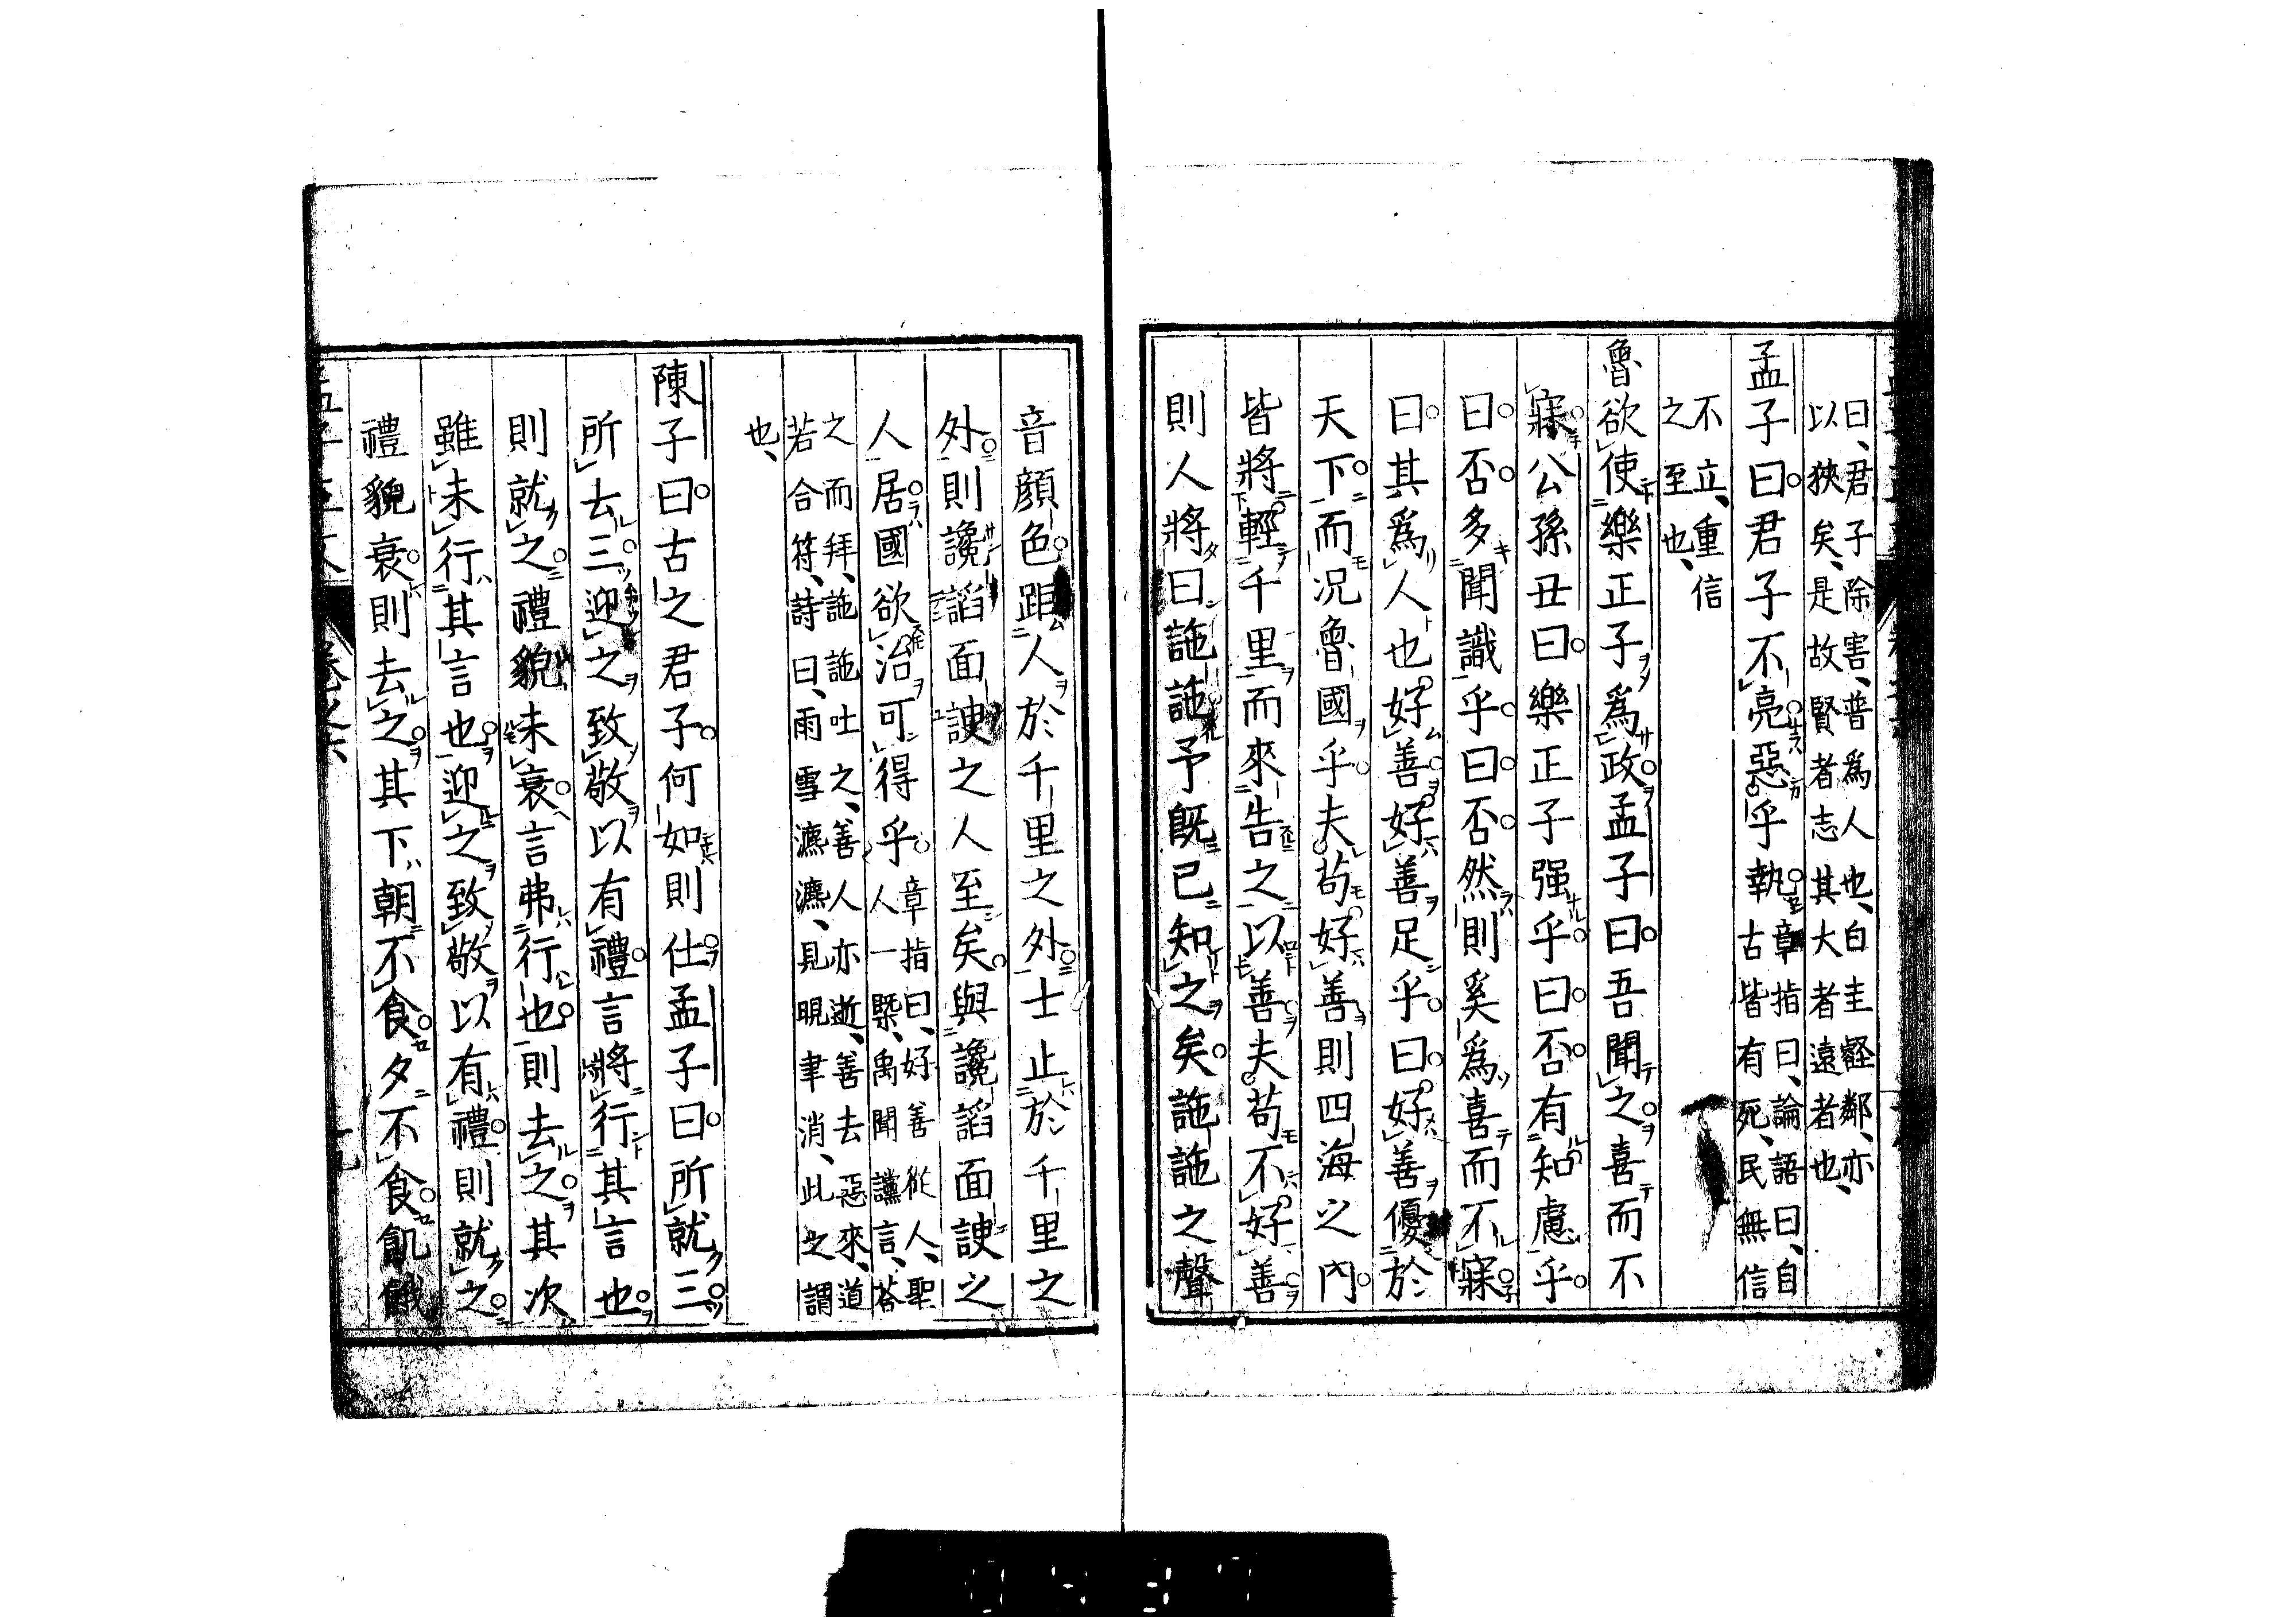 曰、君子除害、普爲人也、白圭壑鄰、亦
以狹矣、是故賢者志其大者遠者也
孟子曰君子不亮惡乎執章指曰、論語曰、自
古皆有死、民無信
不立、重信
之至也、
魯欲使樂正子爲政孟子曰吾聞之喜而不
寐公孫丑曰樂正子强乎曰否有知慮乎
曰否多聞識乎曰否然則奚爲喜而不寐
曰其爲人也好善好善足乎曰好善優於
天下而况魯國乎夫苟好善則四海之內
皆將輕千里而來告之以善夫苟不好善
則人將曰訑訑予既已知之矣訑訑之聲
音顔色距人於千里之外士止於千里之
外則讒謟面諛之人至矣與讒謟面諛之
人居國欲治可得乎章指曰、好善從人、聖
人一槩、禹聞讜言、荅
之而拜、訑訑吐之、善人亦逝、善去惡來、道
若合符、詩曰、雨雪瀌瀌、見晛聿消、此之謂
也、
陳子曰古之君子何如則仕孟子曰所就三
所去三迎之致敬以有禮言將行其言也
則就之禮貌未衰言弗行也則去之其次
雖未行其言也迎之致敬以有禮則就之
禮貌衰則去之其下朝不食夕不食飢餓
卷之六